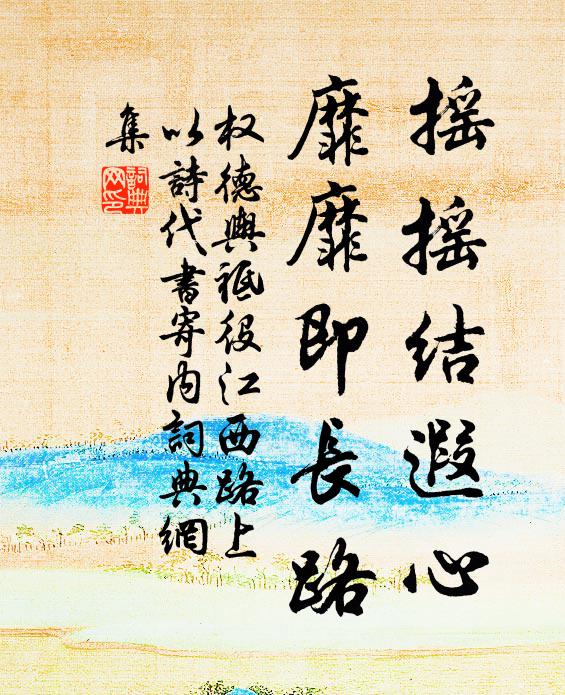 搖搖結遐心
靡靡即長路
权德輿祗役江西路上
以詩代書寄内詞典網
集
詞典
网印